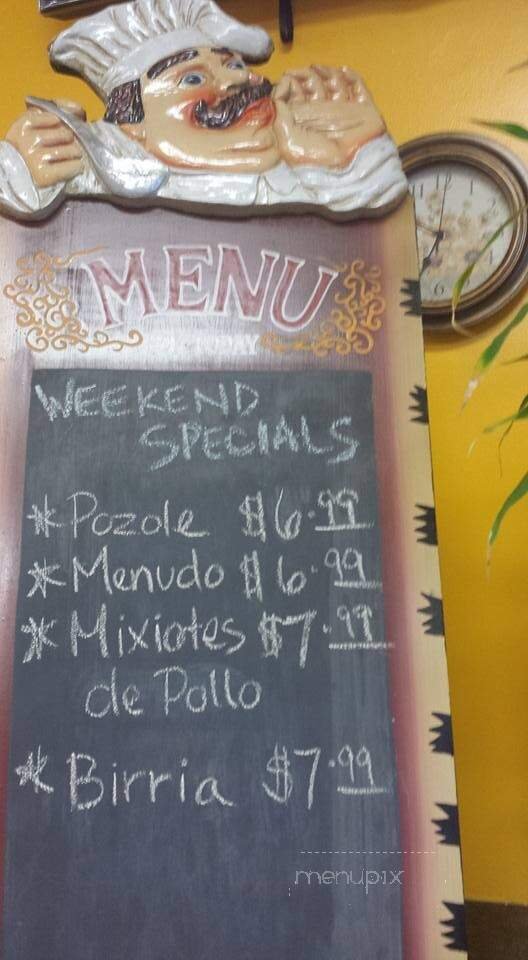 MENU
TODAY
WEEKEND
SPECIALS
* Pozole $6.99
* Menudo $6.99
* Mixiotes $7.99
de Pollo
* Birria $7.99
menupix